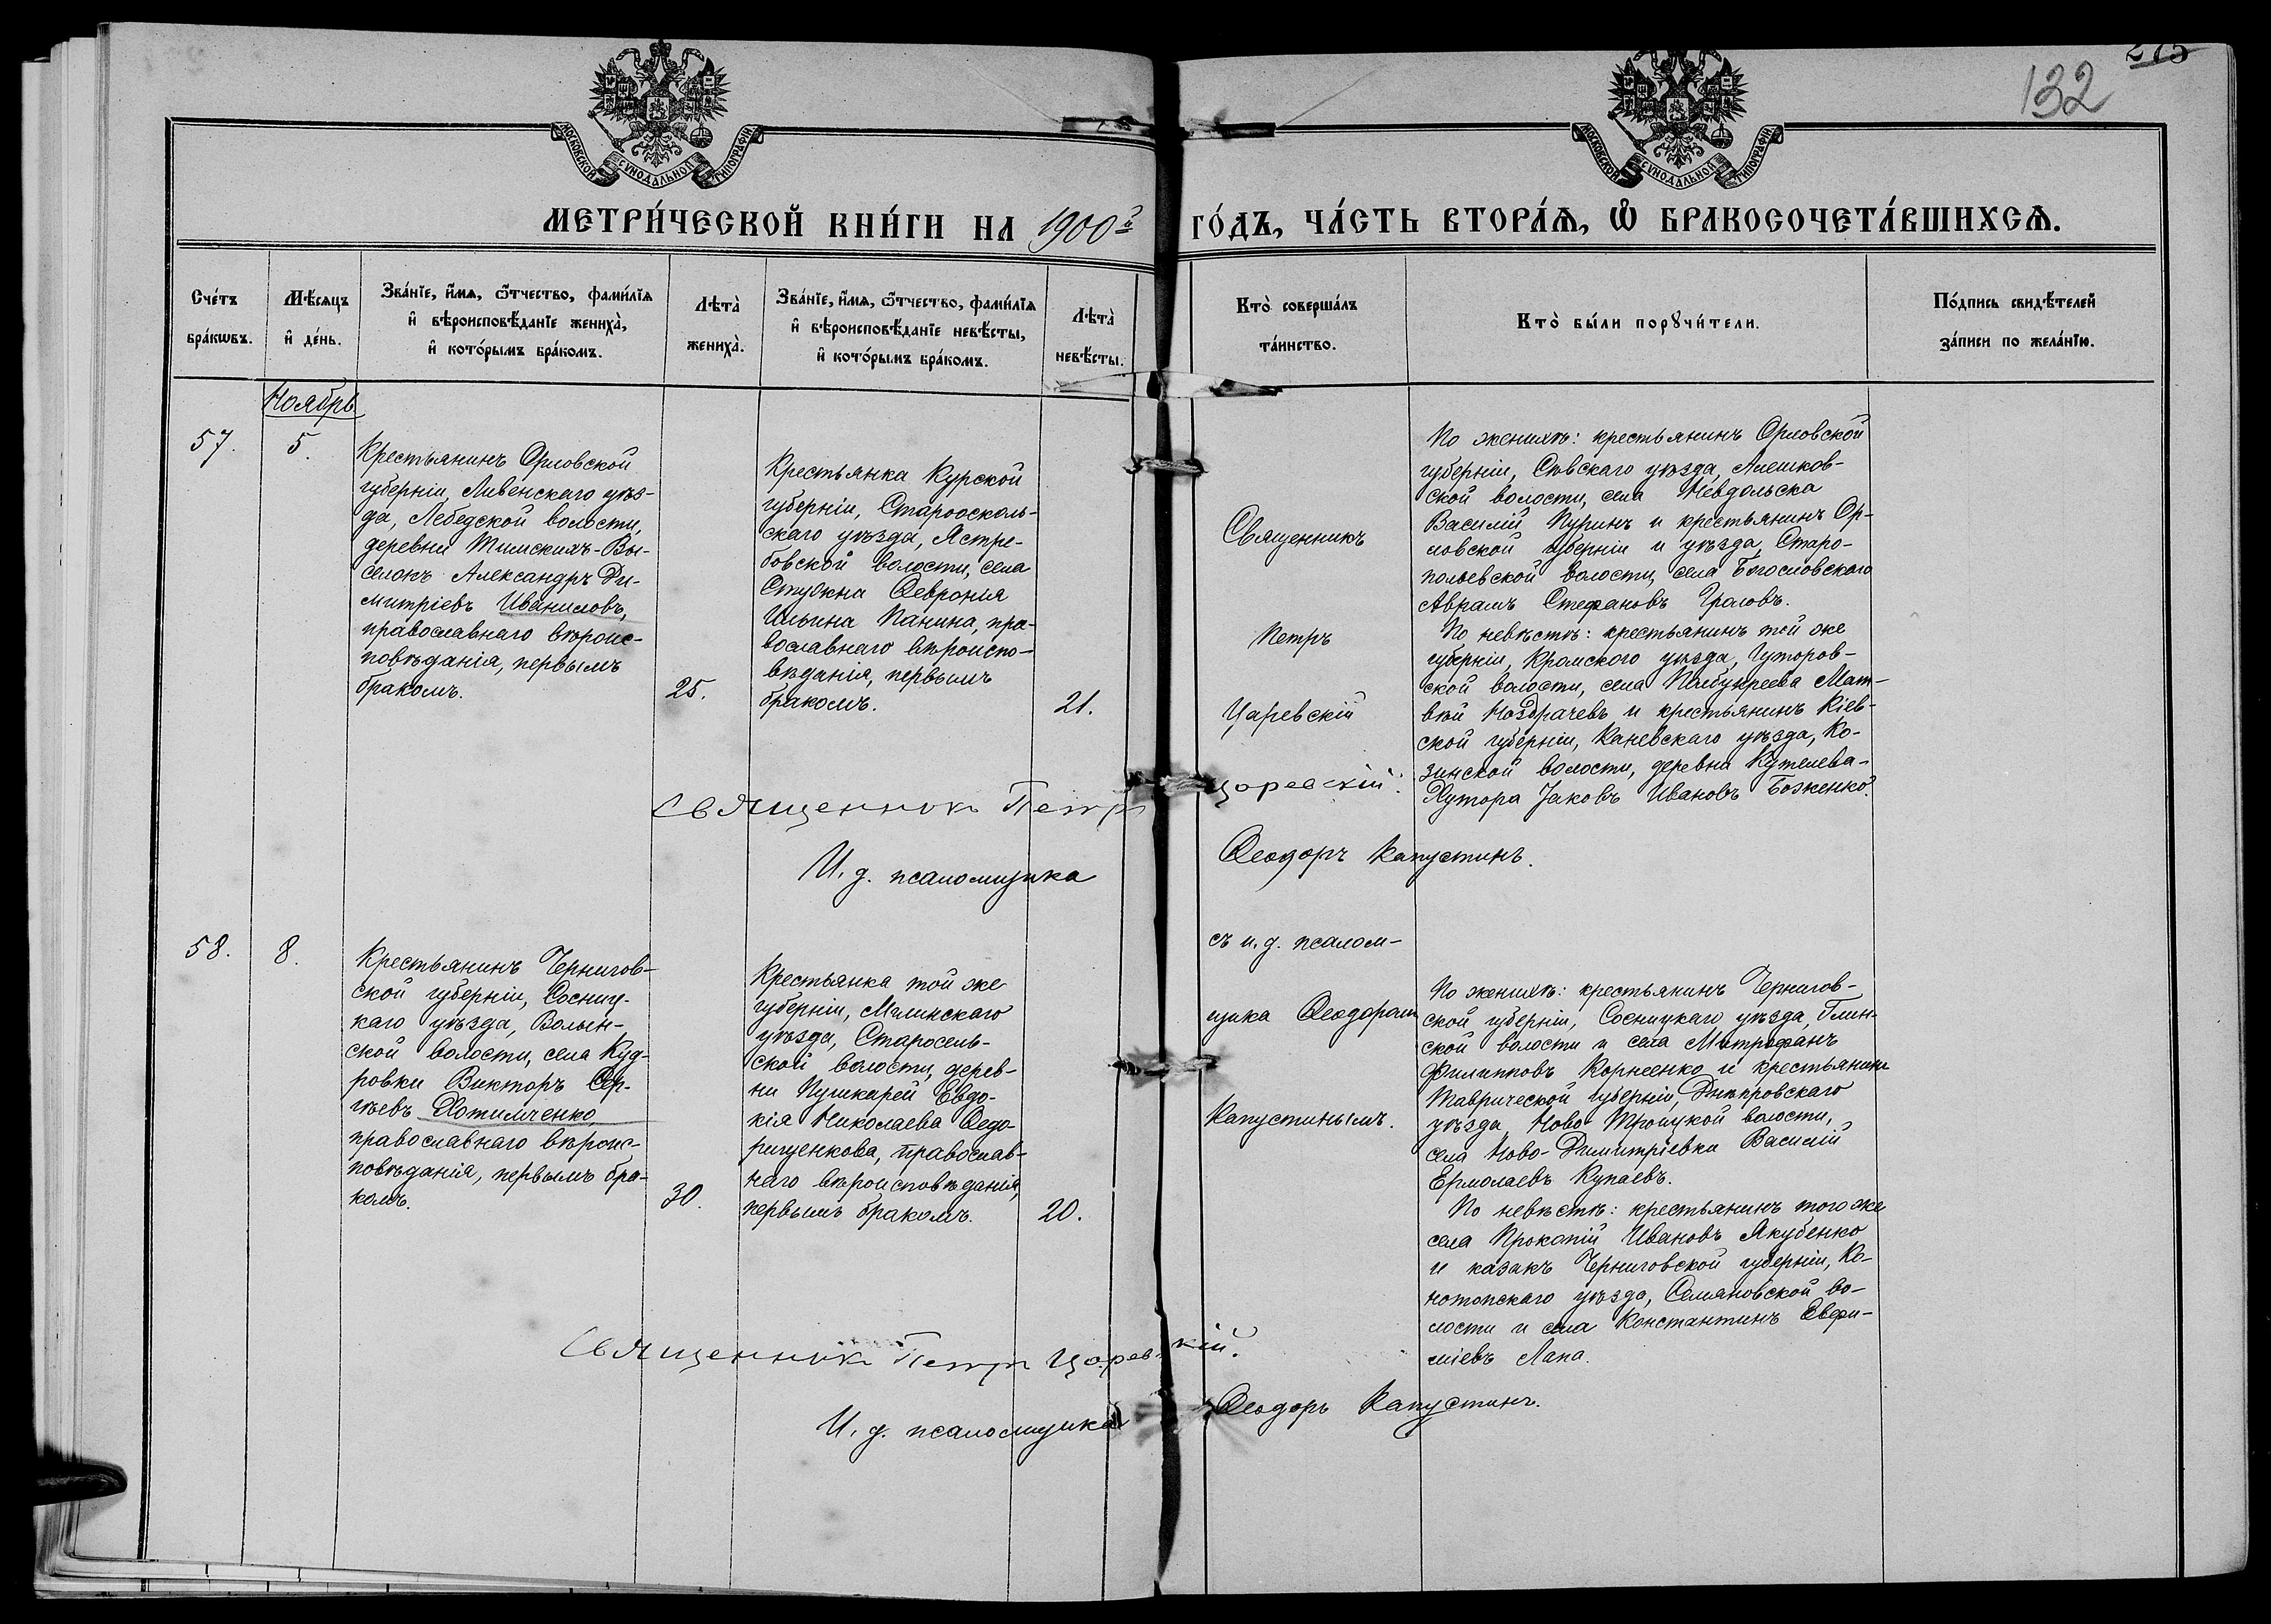 275
132
МОСКОВСКОЙ СѴНОДАЛЬНОЙ ТИПОГРАФІИ
МОСКОВСКОЙ СѴНОДАЛЬНОЙ ТИПОГРАФІИ
МЕТРИ́ЧЕСКОЙ КНИ́ГИ НА 1900й ГО́ДЪ, ЧА́СТЬ ВТОРА́Ѧ, Ѽ БРАКОСОЧЕТА́ВШИХСѦ.
Сче́тъ
бра́кѡвъ.
Мѣ́сяцъ
и҆ де́нь.
Зва́нїе, и҆́мѧ, ѻ҆́тчество, фами́лїѧ
и҆ вѣроисповѣ́данїе жениха̀,
и҆ кото́рымъ бра́комъ.
Лѣта̀
жениха̀.
Зва́нїе, и҆́мѧ, ѻ҆́тчество, фами́лїѧ
и҆ вѣроисповѣ́данїе невѣ́сты,
и҆ кото́рымъ бра́комъ.
Лѣта̀
невѣ́сты.
Кто̀ соверша́лъ
та́инство.
Кто̀ бы́ли порꙋчи́тели.
По́дпись свидѣ́телей
за́писи по жела́нїю.
Ноябрь
57.
5.
Крестьянинъ Орловской
губерніи, Ливенскаго уѣз-
да, Лебедской волости,
деревни Тимскихъ-Вы-
селокъ Александръ Ди-
митріевъ Иваниловъ,
православнаго вѣроис-
повѣданія, первымъ
бракомъ.
25.
Крестьянка Курской
губерніи, Старооскол-
скаго уѣзда, Ястре-
бовской волости, села
Стужна Ѳевронія
Ильина Панина, пра-
вославнаго вѣроиспо-
вѣданія, первымъ
бракомъ.
21.
Священникъ
Петръ
Царевскій
По женихѣ: крестьянинъ Орловской
губерніи, Сѣвскаго уѣзда, Алешков-
ской волости, села Невдольска
Василій Пуринъ и крестьянинъ Ор-
ловской губерніи и уѣзда, Старо-
польевской волости, села Богословскаго
Аврамъ Стефановъ
По невѣстѣ: крестьянинъ той же
губерніи, Кромского уѣзда, Гуторов-
ской волости, села Мат-
вѣй Ноздрачевъ и крестьянинъ Кіев-
ской губерніи, Каневскаго уѣзда, Ко-
зинской волости, деревни Кутелева-
Хутора Іаковъ Ивановъ Боженко.
Священник Петр Царевскій.
И. д. псаломщика Ѳеодоръ Капустинъ.
58.
8.
Крестьянинъ Чернигов-
ской губерніи, Сосниц-
каго уѣзда, Волын-
ской волости, села Куд-
ровки Викторъ Сер-
гѣевъ Хотимченко,
православнаго вѣроис-
повѣданія, первымъ бра-
комъ.
30.
Крестьянка той же
губерніи, Мглинскаго
уѣзда, Старосель-
ской волости, дерев-
ни Пушкарей Евдо-
кія Николаева Ѳедо-
рищенкова, православ-
наго вѣроисповѣданія,
первымъ бракомъ.
20.
съ и. д. псалом-
щика Ѳеодоромъ
Капустинымъ.
По женихѣ: крестьянинъ Чернигов-
ской губерніи, Сосницкаго уѣзда, Блин-
ской волости и села Митрофанъ
Филипповъ Корнеенко и крестьянинъ
Таврической губерніи, Днѣпровскаго
уѣзда, Ново-Троицкой волости,
села Ново-Димитріевки Василій
Ермолаевъ Купаевъ.
По невѣстѣ: крестьянинъ того же
села Прокопій Ивановъ Якубенко
и казакъ Черниговской губерніи, Ко-
нотопскаго уѣзда, Семяновской во-
лости и села Константинъ Евфи-
міевъ Лапа.
Священник Петр Царевскій.
И. д. псаломщика Ѳеодоръ Капустинъ.